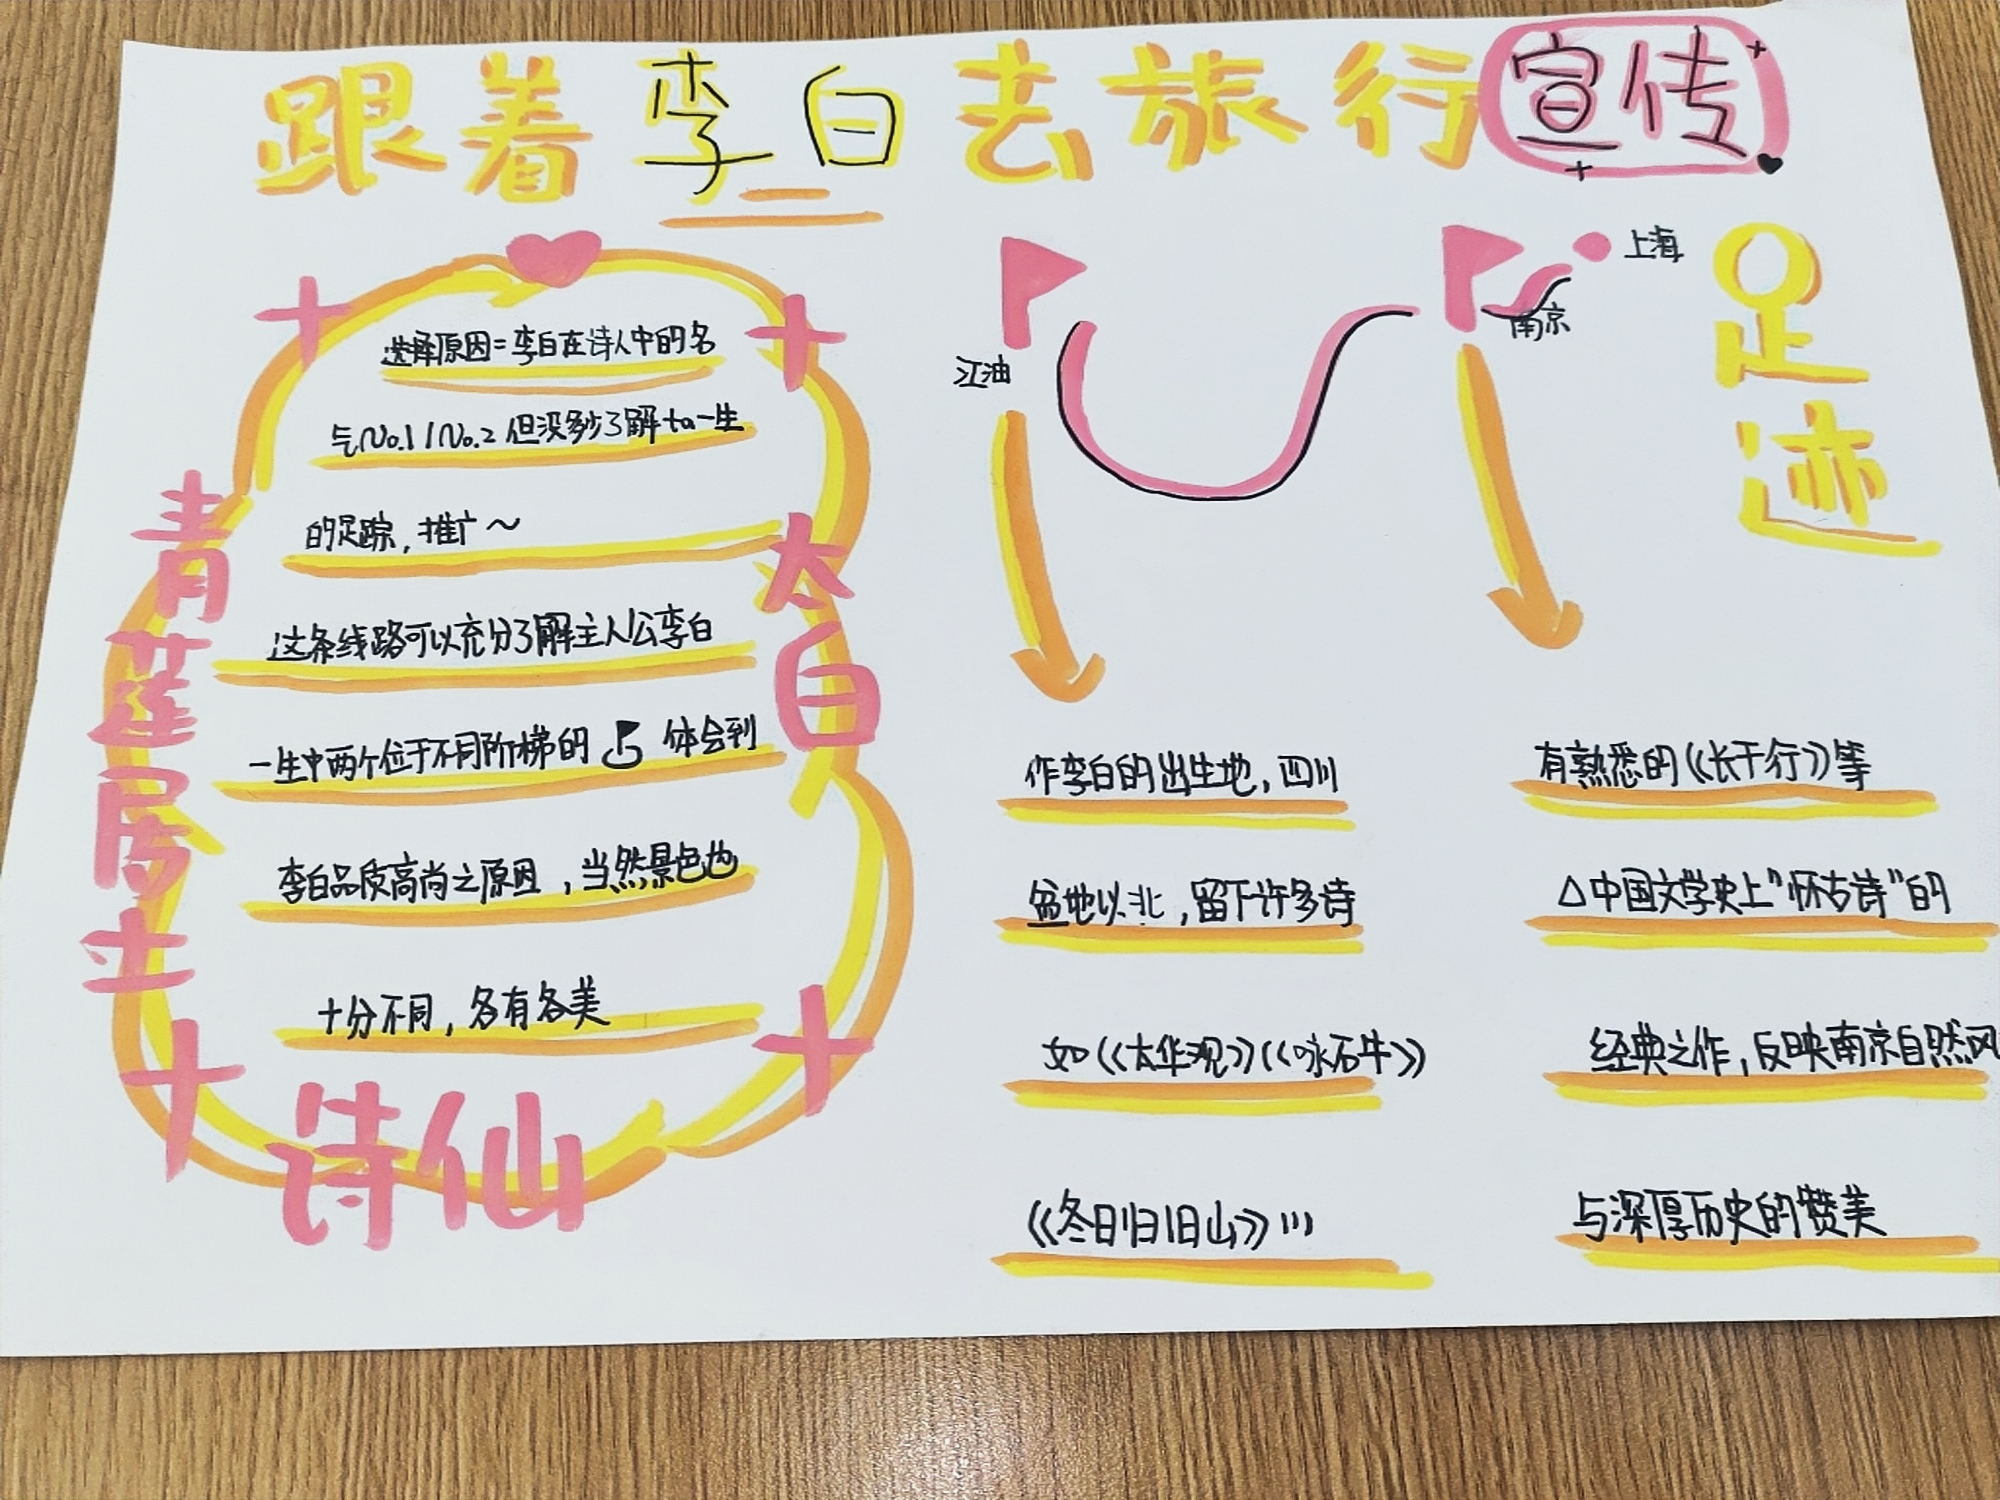 跟着李白去旅行宣传
选择原因=李白在诗人中的名
气No.1/No.2 但没多少了解ta一生
的足踪,推广~
这条线路可以充分了解主人公李白
一生中两个位于不同阶梯的 点 体会到
李白品质高尚之原因,当然景色也
十分不同,各有各美
青莲居士
太白
诗仙
足迹
江油
南京
上海
作李白的出生地,四川
盆地以北,留下许多诗
如《太华观》《咏石牛》
《冬日归旧山》...
有熟悉的《长干行》等
△中国文学史上"怀古诗"的
经典之作,反映南京自然风
与深厚历史的赞美